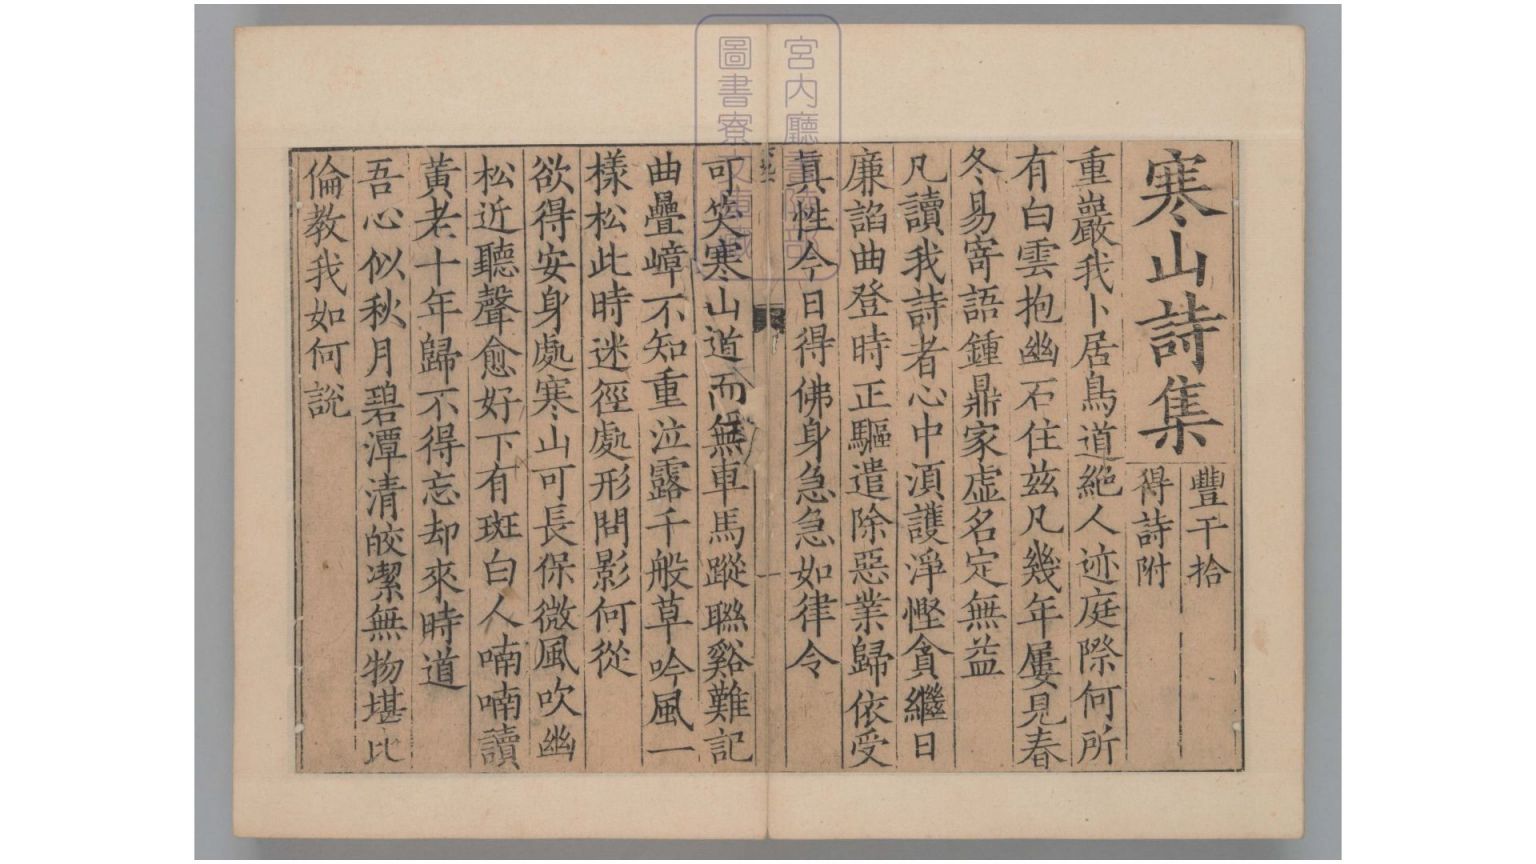 寒山詩集
豐干拾
得詩附
重巖我卜居鳥道絕人迹庭際何所
有白雲抱幽石住茲凡幾年屢見春
冬易寄語鍾鼎家虛名定無益
凡讀我詩者心中湏護淨慳貪繼日
廉諂曲登時正驅遣除惡業歸依受
眞性今日得佛身急急如律令
可笑寒山道而無車馬蹤聯谿難記
曲疊嶂不知重泣露千般草吟風一
樣松此時迷徑處形問影何從
欲得安身處寒山可長保微風吹幽
松近聽聲愈好下有斑白人喃喃讀
黃老十年歸不得忘却來時道
吾心似秋月碧潭清皎潔無物堪比
倫教我如何說
宮内廳書陵部
圖書寮文庫藏